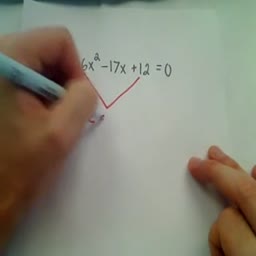 6x² -17x +12 = 0